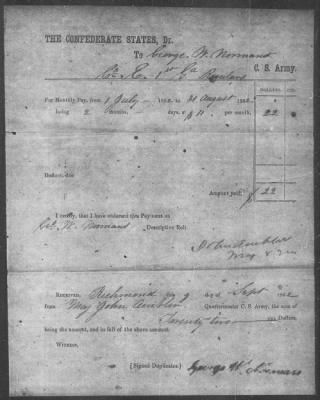 THE CONFEDERATE STATES, Dr.
To George W. Normans
Co. C. 1st Ga Regulars C. S. Army.
DOLLARS. CTS.
For Monthly Pay, from 1 July 1862, to 31 August 1862
being 2 months, days, @ $11 per month, 22
Deduct, due
Amount paid, $ 22
I certify, that I have endorsed this Payment on
Geo. W. Normans Descriptive Roll.
John Ambler
Maj & QM
RECEIVED, Richmond 9 day of Sept 1862
from Maj John Ambler Quartermaster C. S. Army, the sum of
Twenty two Dollars,
being the amount, and in full of the above account.
Witness,
(Signed Duplicates.) George W. Normans